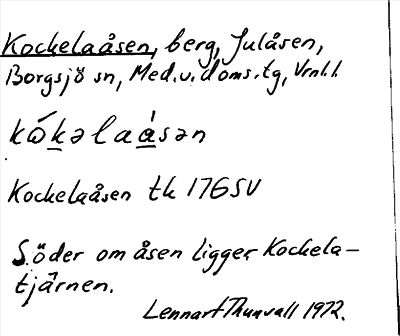 Kockelaåsen, berg, Julåsen,
Borgsjö sn, Med.v.doms.tg, Vrnl.l.
kẃkəlaásən
Kockelaåsen tk 176SV
Söder om åsen ligger Kockela-
tjärnen.
Lennart Thunvall 1972.